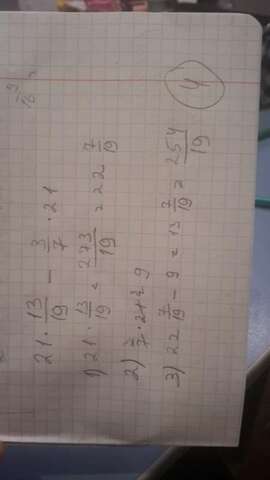 21 · 13/19 − 3/7 · 21
1) 21 · 13/19 = 273/19 = 22 7/19
2) 3/7 · 21 = 9
3) 22 7/19 − 9 = 13 7/19 = 254/19
4